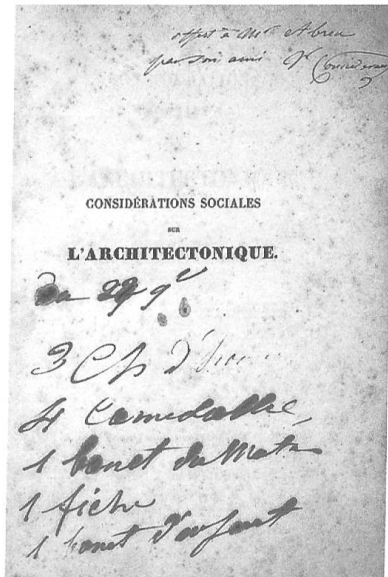 offert à Mr Abreu
par son ami V Considerant
CONSIDÉRATIONS SOCIALES
SUR
L'ARCHITECTONIQUE.
Du 29 9
3 Ch d'
4
1 bonet du
1 fiche
1 bonet d'enfant